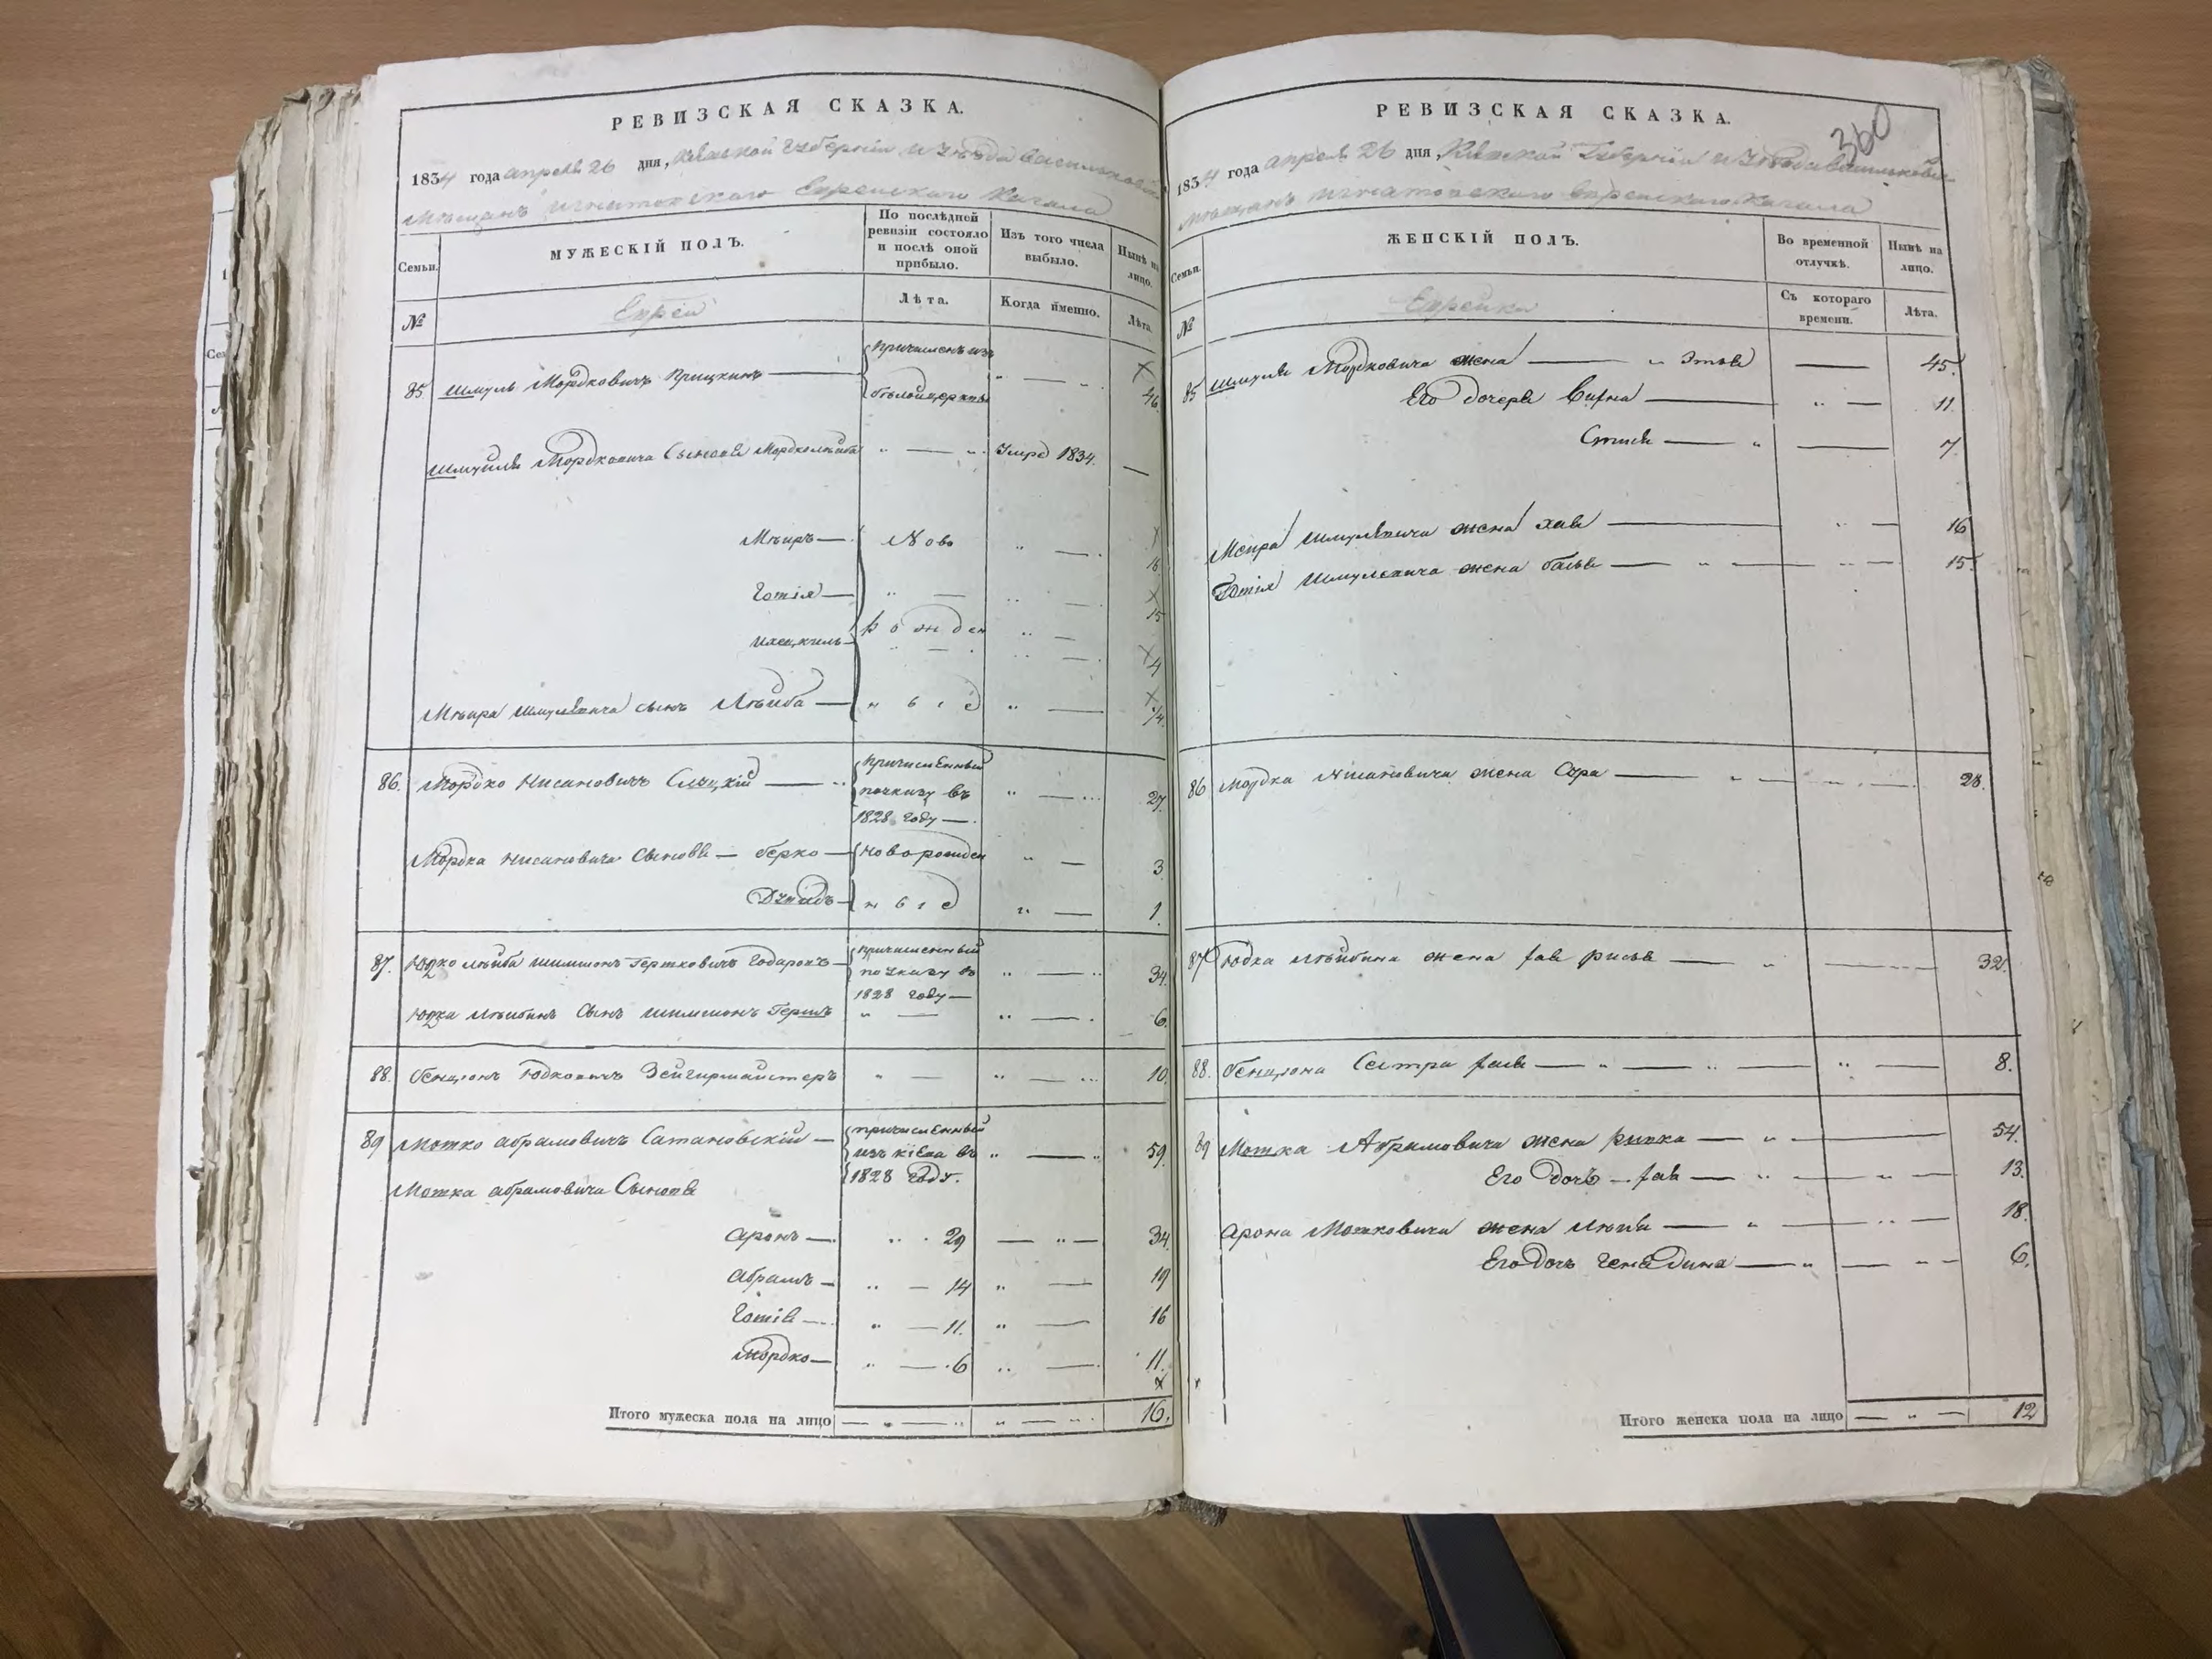 РЕВИЗСКАЯ СКАЗКА.
1834 года апреля 26 дня, Киевской Губерніи и уезда
Мещанъ Игнатовскаго Еврейскаго Кагала
Семьи.
МУЖЕСКІЙ ПОЛЪ.
По послѣдней ревизіи состояло и послѣ оной прибыло.
Изъ того числа выбыло.
Нынѣ на лицо.
№
Еврей
Лѣта.
Когда именно.
Лѣта.
85. Шмуль Мордковичъ причисленъ изъ Белойцеркви 46
Шмуля Мордковича Сыновья Умре 1834.
Мѣиръ — Ново 16
Готія — 15
рожден 4
Мѣира Шмулевича сынъ Лѣйба — ныіе 1/4
86. Мордко Нисановичъ Слуцкій — причисленный поуказу въ 1828 году — 27.
Мордка Нисановича Сыновья — Берко — новорожден 3.
ныіе 1.
87. Юдко Лѣйба Шимшонъ причисленный по указу в 1828 году — 34.
Юдка Лѣйбинъ Сынъ Шимшонъ Гершъ 6.
88. Бенціонъ Юдковичъ Зейгирмайстеръ 10.
89 Мотко Абрамовичъ Сатановскій — причисленный изъ Кіева въ 1828 году. 59.
Мотка Абрамовича Сыновья
Аронъ — 29 34.
Абрамъ — 14 19
Готіе — 11. 16
Мордко — 6 11.
Итого мужеска пола на лицо 16.
360
РЕВИЗСКАЯ СКАЗКА.
1834 года апреля 26 дня, Киевской Губерніи и уезда
мещанъ Игнатовскаго Еврейскаго Кагала
Семьи.
ЖЕНСКІЙ ПОЛЪ.
Во временной отлучкѣ.
Нынѣ на лицо.
№
Еврейки
Съ котораго времени.
Лѣта.
85 Шмуля Мордковича жена — Этля 45.
Его дочери 11.
7.
Меира Шмулевича жена Хая — 16
Готія Шмулевича жена 15.
86 Мордка Нисановича жена Сура — 28.
87 Юдка Лѣйбина жена 32.
88. Бенціона Сестра 8.
89 Мотка Абрамовича жена Ривка — 54.
Его дочь — 13.
Арона Мотковича жена 18.
Его дочь 6.
Итого женска пола на лицо 12